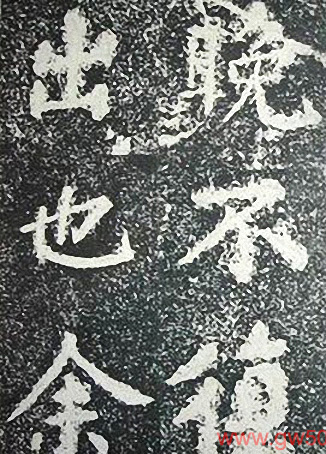 晚不復
出也余
www.gw50